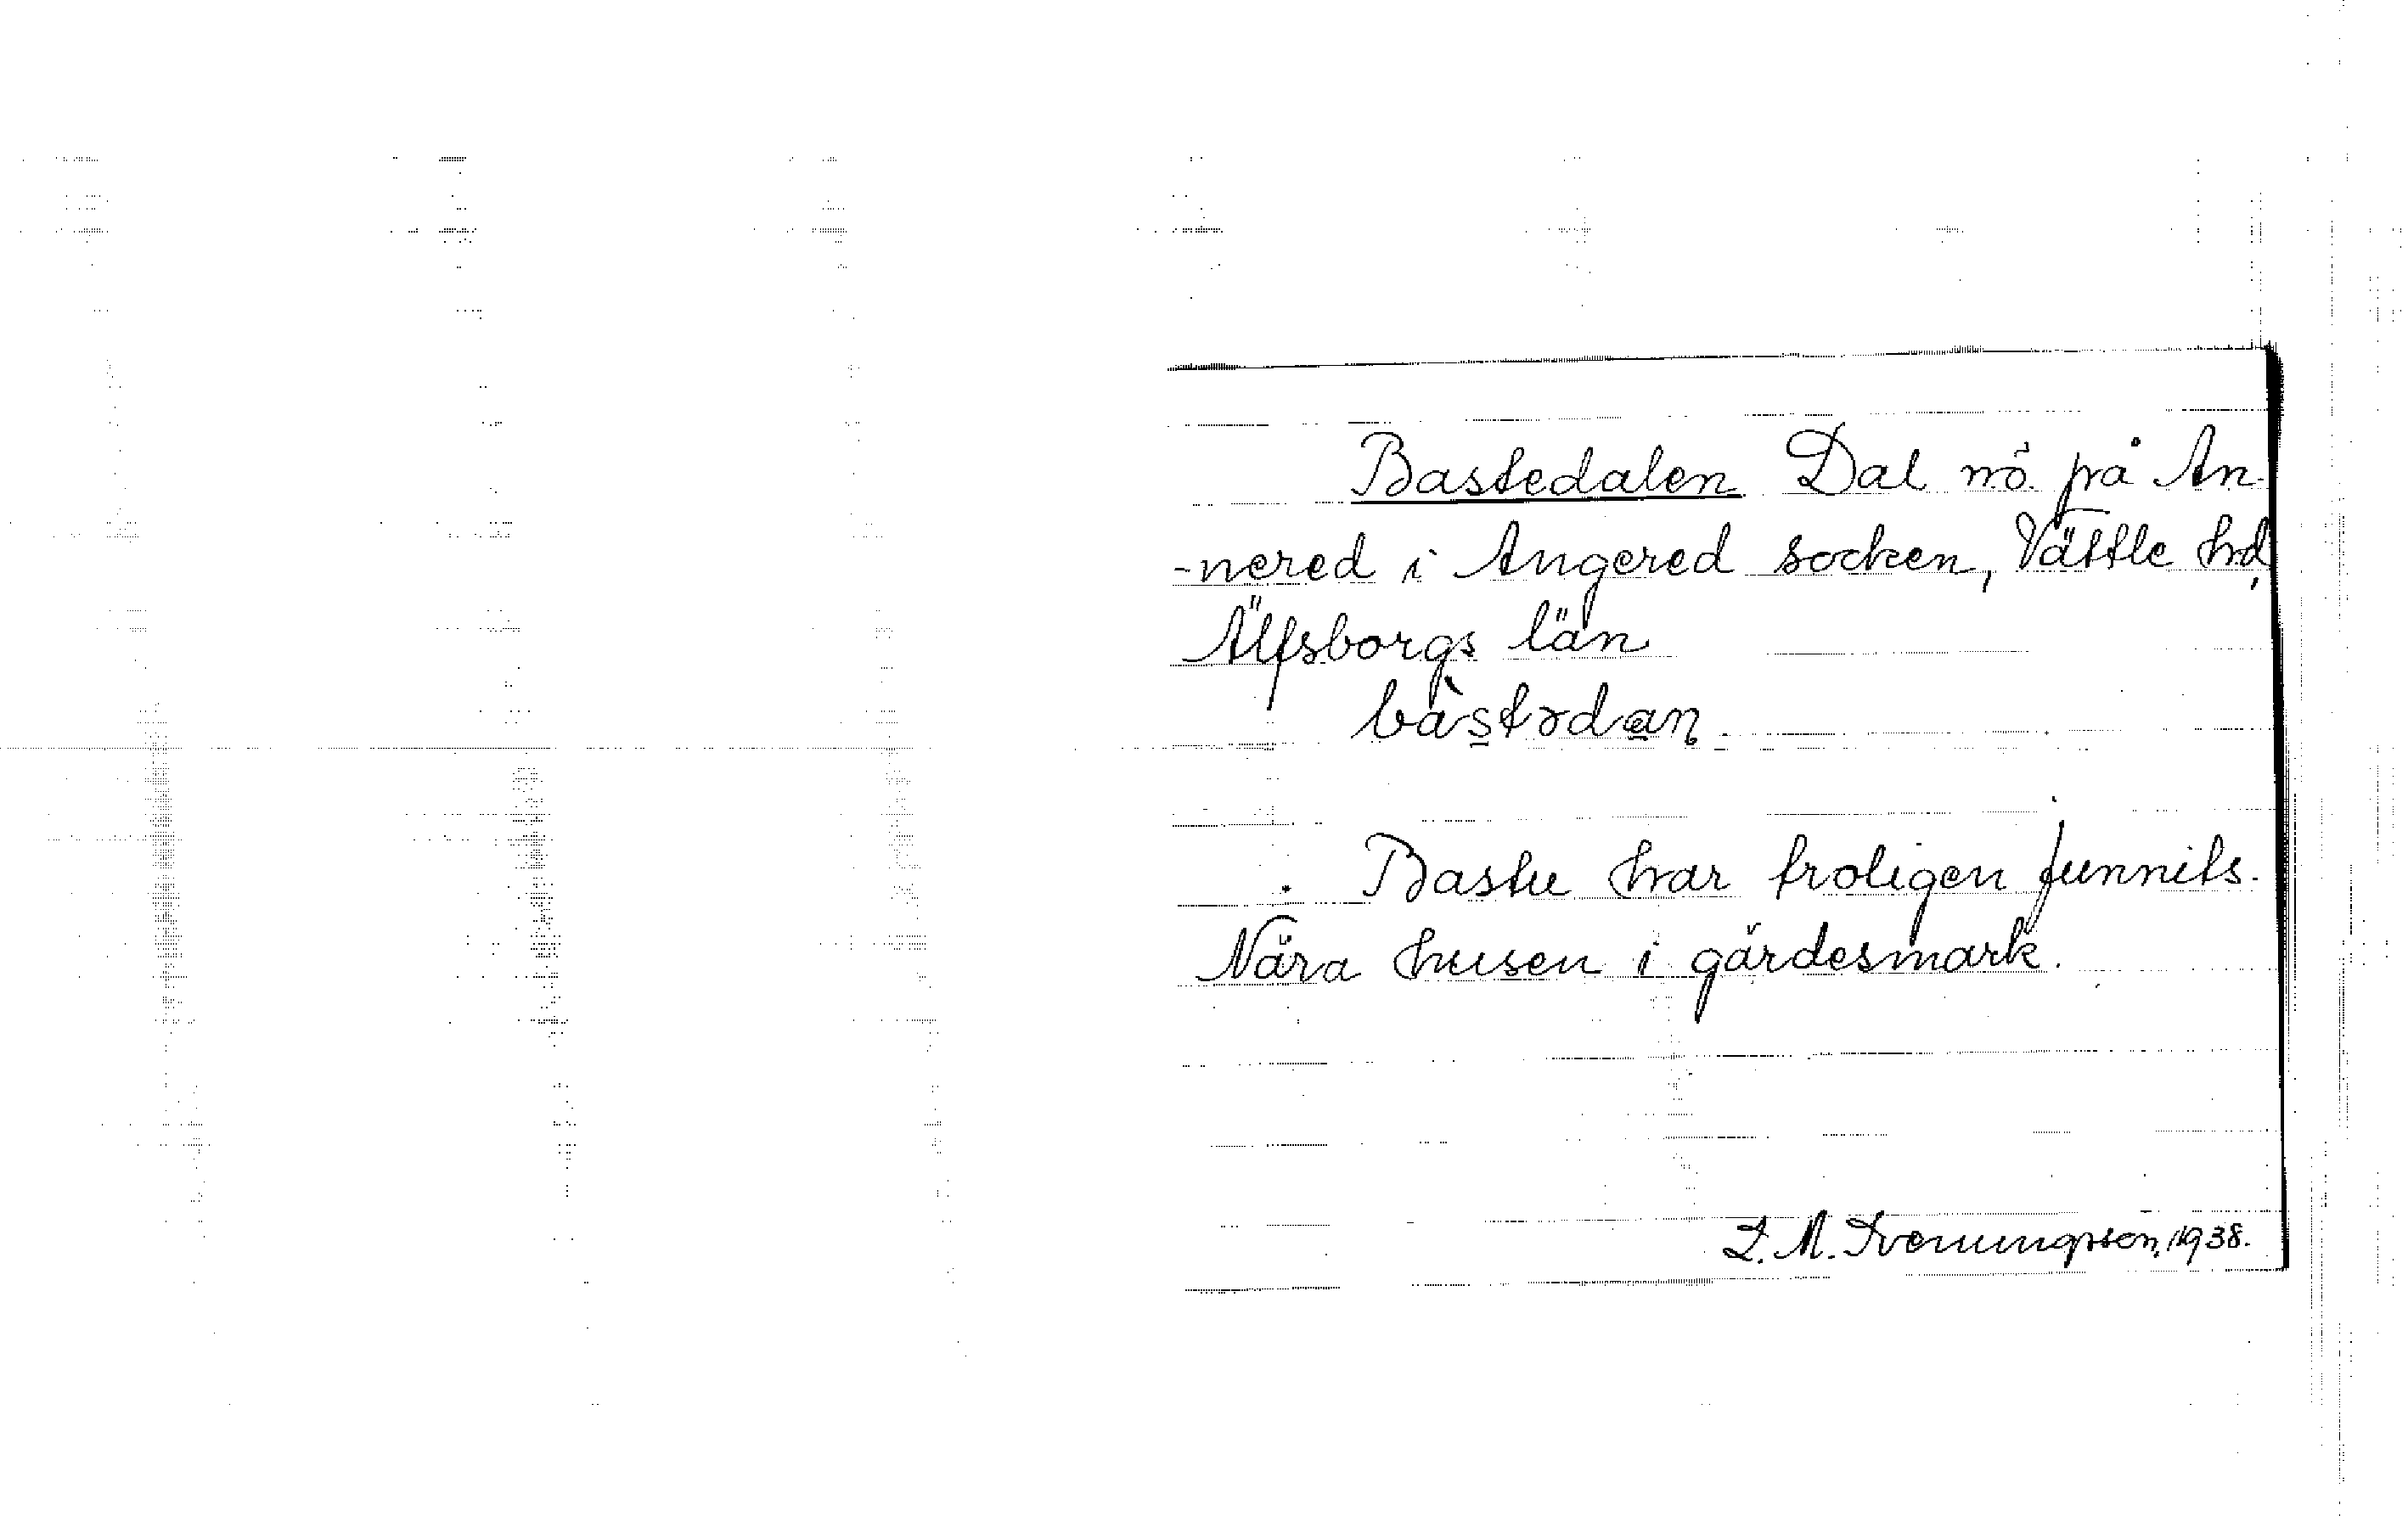 Bastedalen Dal nö. på An-
-nered i Angered socken, Vättle hd,
Älfsborgs län
bàstədan
Bastu har troligen funnits.
Nära husen i gärdesmark.
L. M. Svenungsson, 1938.